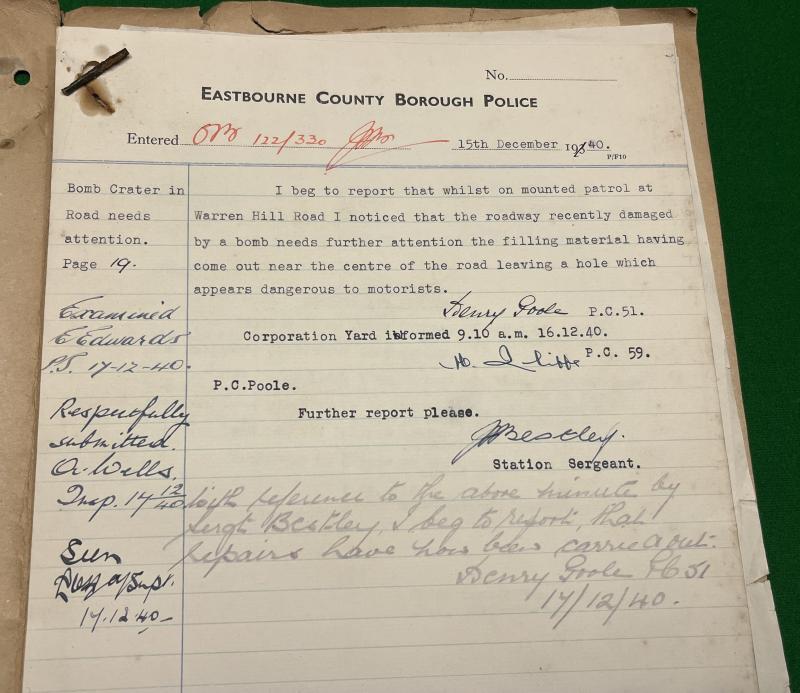 No.
EASTBOURNE COUNTY BOROUGH POLICE
Entered OB 122/330 15th December 1940.
P/F10
Bomb Crater in
Road needs
attention.
Page 19.
I beg to report that whilst on mounted patrol at
Warren Hill Road I noticed that the roadway recently damaged
by a bomb needs further attention the filling material having
come out near the centre of the road leaving a hole which
appears dangerous to motorists.
Henry Poole P.C.51.
Corporation Yard informed 9.10 a.m. 16.12.40.
P.C. 59.
P.C.Poole.
Further report please.
Bestley.
Station Sergeant.
With reference to the above minute by
Sergt Bestley, I beg to report, that
repairs have now been carried out.
Henry Poole PC 51
17/12/40.
Examined
E Edwards
P.S. 17-12-40.
Respectfully
submitted.
A. Wells.
Insp. 17 12/40
Seen
a/Supt.
17.12.40